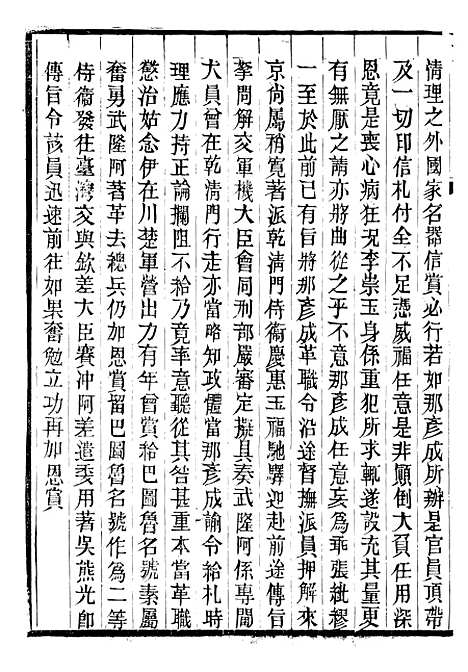 情理之外國家名器信賞必行若如那彥成所辦是官員頂帶
及一切印信札付全不足憑威福任意是非顛倒大負任用深
恩竟是喪心病狂況李崇玉身係重犯所求輒遂設充其量更
有無厭之請亦將曲從之乎不意那彥成任意妄為乖張紕繆
一至於此前已有旨將那彥成革職令沿途督撫派員押解來
京尚屬稍寬著派乾清門侍衞慶惠玉福馳驛迎赴前途傳旨
拏問解交軍機大臣會同刑部嚴審定擬具奏武隆阿係專閫
大員曾在乾清門行走亦當略知政體當那彥成諭令給札時
理應力持正論攔阻不給乃竟率意聽從其咎甚重本當革職
懲治姑念伊在川楚軍營出力有年曾賞給巴圖魯名號素屬
奮勇武隆阿著革去總兵仍加恩賞留巴圖魯名號作為二等
侍衞發往臺灣交與欽差大臣賽沖阿差遣委用著吳熊光卽
傳旨令該員迅速前往如果奮勉立功再加恩賞